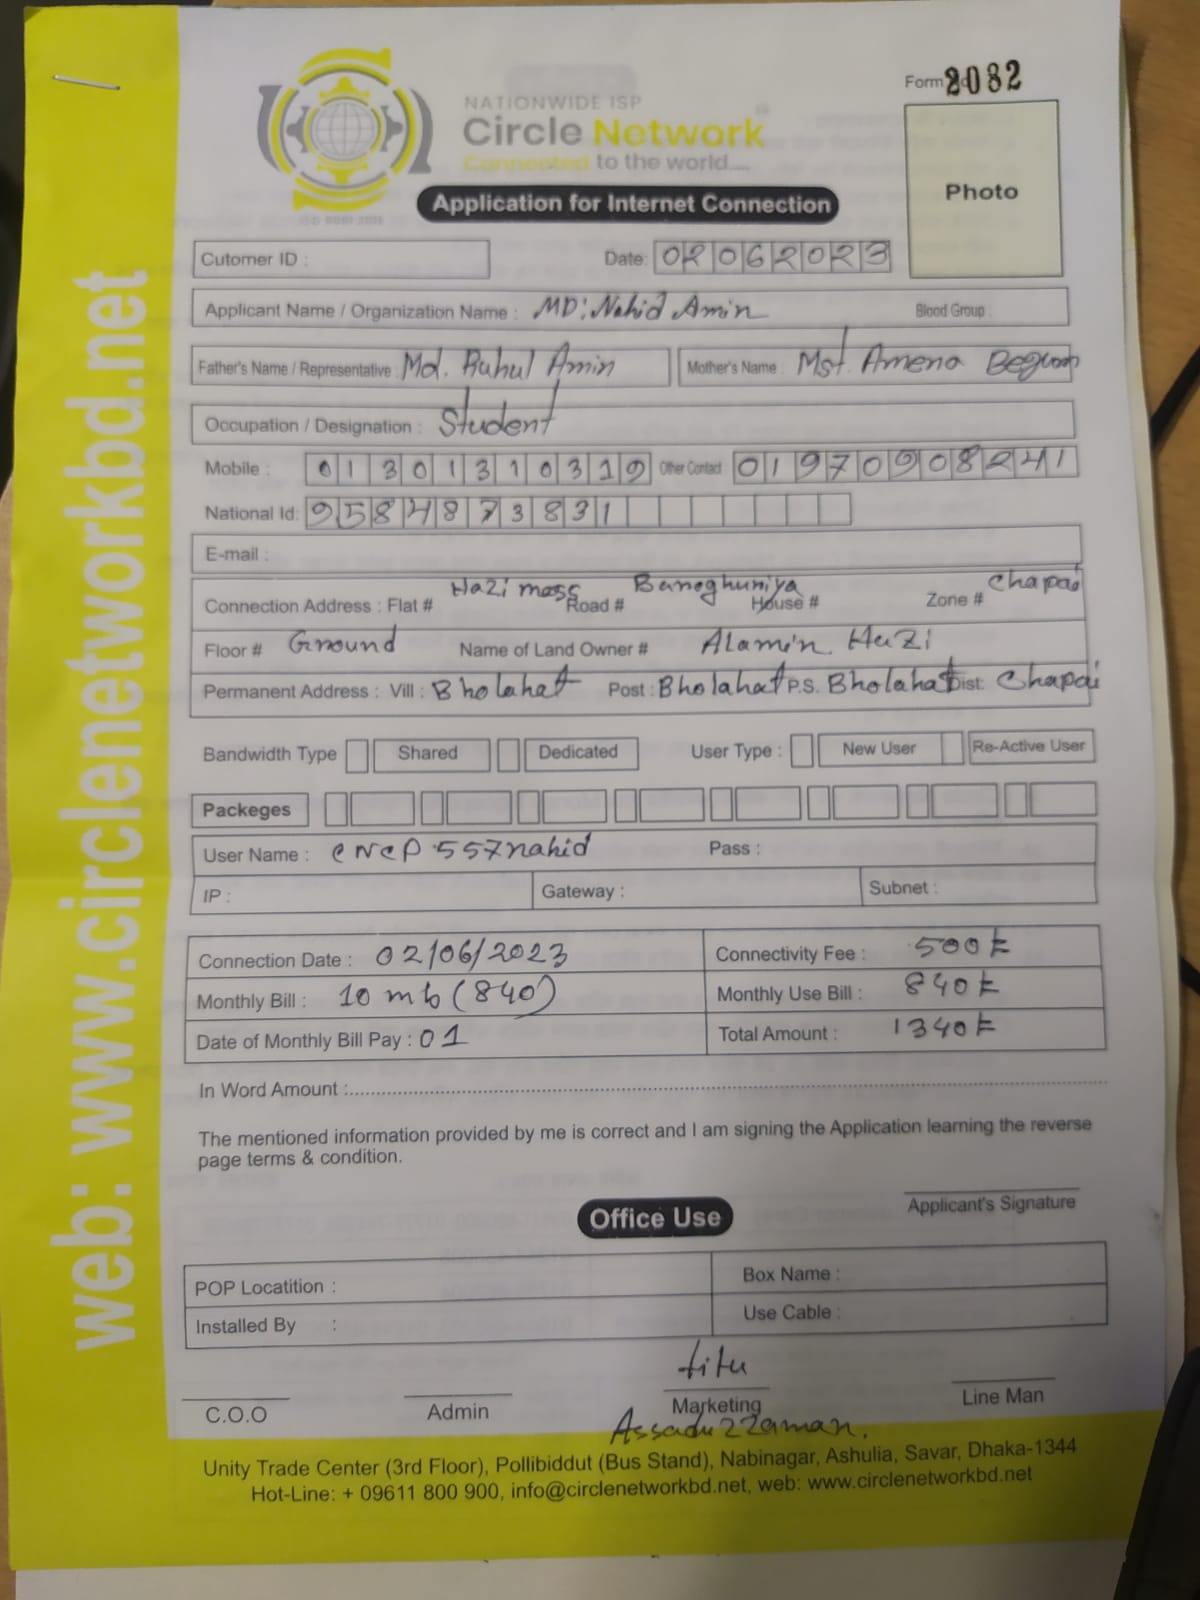 Form 2082
NATIONWIDE ISP
Circle Network
Connected to the world....
ISO 9001:2015
Application for Internet Connection
Photo
Cutomer ID :
Date: 02062023
Applicant Name / Organization Name : MD: Nahid Amin Blood Group :
Father's Name / Representative Md. Ruhul Amin Mother's Name Mst. Amena Begum
Occupation / Designation : Student
Mobile : 01301310319 Other Contact 01970908241
National Id: 9584873831
E-mail :
Connection Address : Flat # Hazi mass Road # Baneghuniya House # Zone # Chapai
Floor # Ground Name of Land Owner # Alamin Hazi
Permanent Address : Vill : Bholahat Post : Bholahat P.S. Bholahat Dist: Chapai
Bandwidth Type Shared Dedicated User Type : New User Re-Active User
Packeges
User Name : CNCP557nahid Pass :
IP : Gateway : Subnet :
Connection Date : 02/06/2023 Connectivity Fee : 500
Monthly Bill : 10 mb (840) Monthly Use Bill : 840
Date of Monthly Bill Pay : 01 Total Amount : 1340
In Word Amount :
The mentioned information provided by me is correct and I am signing the Application learning the reverse
page terms & condition.
Applicant's Signature
Office Use
POP Locatition : Box Name :
Installed By : Use Cable :
titu
C.O.O Admin Marketing Line Man
Assaduzzaman.
Unity Trade Center (3rd Floor), Pollibiddut (Bus Stand), Nabinagar, Ashulia, Savar, Dhaka-1344
Hot-Line: + 09611 800 900, info@circlenetworkbd.net, web: www.circlenetworkbd.net
web: www.circlenetworkbd.net